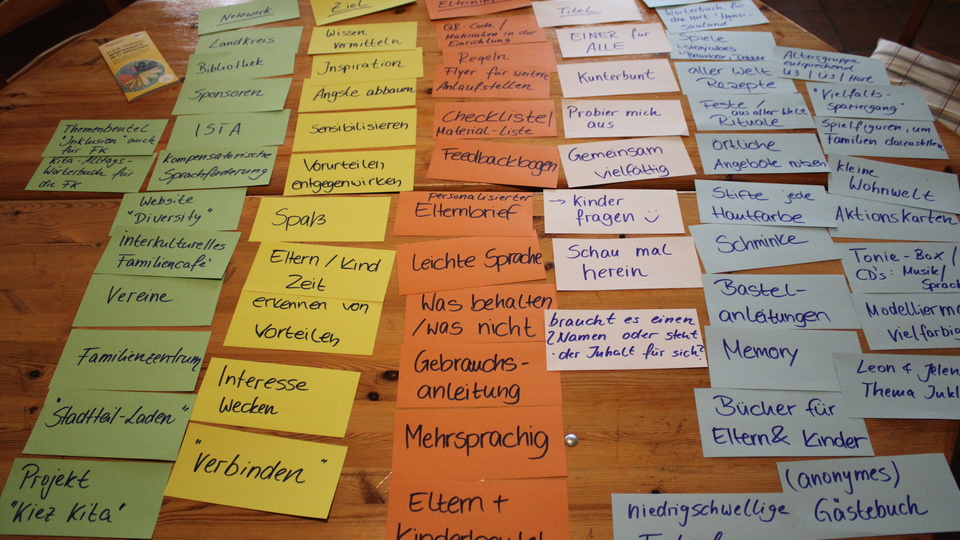 Netzwerk
Landkreis
Bibliothek
Sponsoren
ISTA
Kompensatorische
Sprachförderung
Themenbeutel
"Inklusion" auch
für FK
Kita-Alltags-
Wörterbuch für
die FK
Website
"Diversity"
interkulturelles
Familiencafé
Vereine
Familienzentrum
"Stadtteil-Laden"
Projekt
"Kiez Kita"
Ziel
Wissen
vermitteln
Inspiration
Ängste abbauen
Sensibilisieren
Vorurteilen
entgegenwirken
Spaß
Eltern / Kind
Zeit
erkennen von
Vorteilen
Interesse
wecken
"Verbinden"
QR-Code /
Materialien in der
Einrichtung
Regeln
Flyer für weitere
Anlaufstellen
Checkliste /
Material-Liste
Feedbackbogen
personalisierter
Elternbrief
Leichte Sprache
Was behalten
/was nicht
Gebrauchs-
anleitung
Mehrsprachig
Eltern +
Kinderbeutel
Titel
EINER für
ALLE
Kunterbunt
Probier mich
aus
Gemeinsam
vielfältig
→ Kinder
fragen
Schau mal
herein
braucht es einen
Namen oder steht
der Inhalt für sich?
Wörterbuch für
Spiele
aller Welt
Rezepte
Feste /
aus aller Welt
Rituale
örtliche
Angebote nutzen
Stifte jede
Hautfarbe
Schminke
Bastel-
anleitungen
Memory
Bücher für
Eltern & Kinder
niedrigschwellige
Altersgruppe
entsprechend
U3 / Ü3 / Hort
"Vielfalts-
spaziergang"
Spielfiguren, um
Familien darzustellen
kleine
Wohnwelt
Aktionskarten
Tonie-Box /
CD's: Musik /
Modellierm
Vielfarbig
Leon & Jelen
Thema Inkl
(anonymes)
Gästebuch